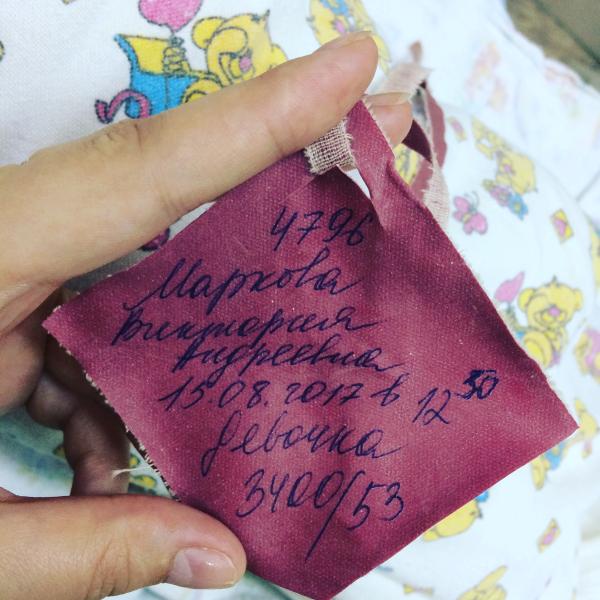 4796
Маркова
Виктория
Андреевна
15.08.2017 в 12 30
Девочка
3400/53